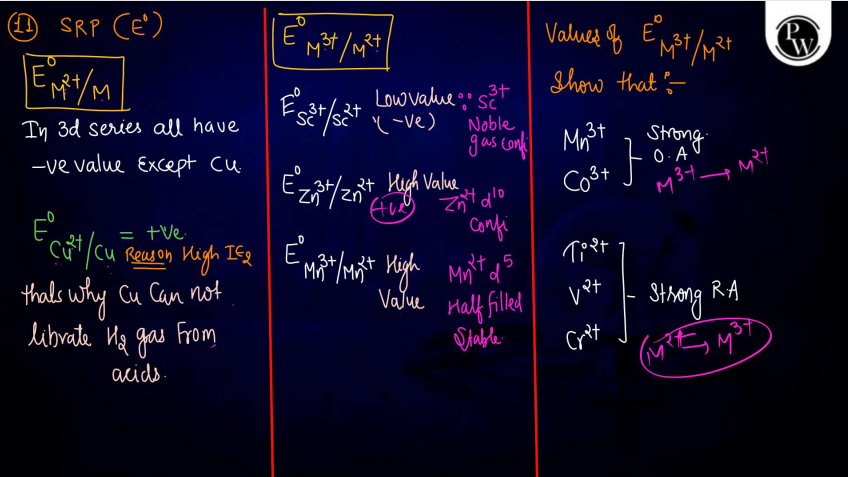 11 SRP (E°)
E° M2+/M
In 3d series all have
-ve value Except Cu
E° Cu2+/Cu = +ve
Reason High IE2
thats why Cu Can not
librate H2 gas From
acids.
E° M3+/M2+
E° Sc3+/Sc2+ Low value ∵ Sc3+
(-ve) Noble
gas confi
E° Zn3+/Zn2+ High Value
+ve Zn2+ d10
Confi
E° Mn3+/Mn2+ High
Value
Mn2+ d5
Half filled
Stable
Values of E° M3+/M2+
Show that :-
Mn3+
Co3+
Strong
O.A
M3+ → M2+
Ti2+
V2+
Cr2+
Strong R.A
M2+ → M3+
PW